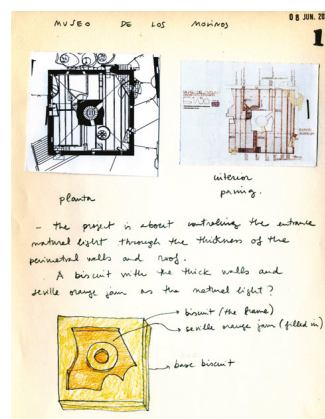 MUSEO DE LOS MOLINOS
08 JUN. 20
1
planta
interior
paving.
- the project is about controling the entrance
natural light through the thickness of the
perimetral walls and roof.
A biscuit with the thick walls and
seville orange jam as the natural light?
biscuit (the frame)
seville orange jam (filled in)
base biscuit